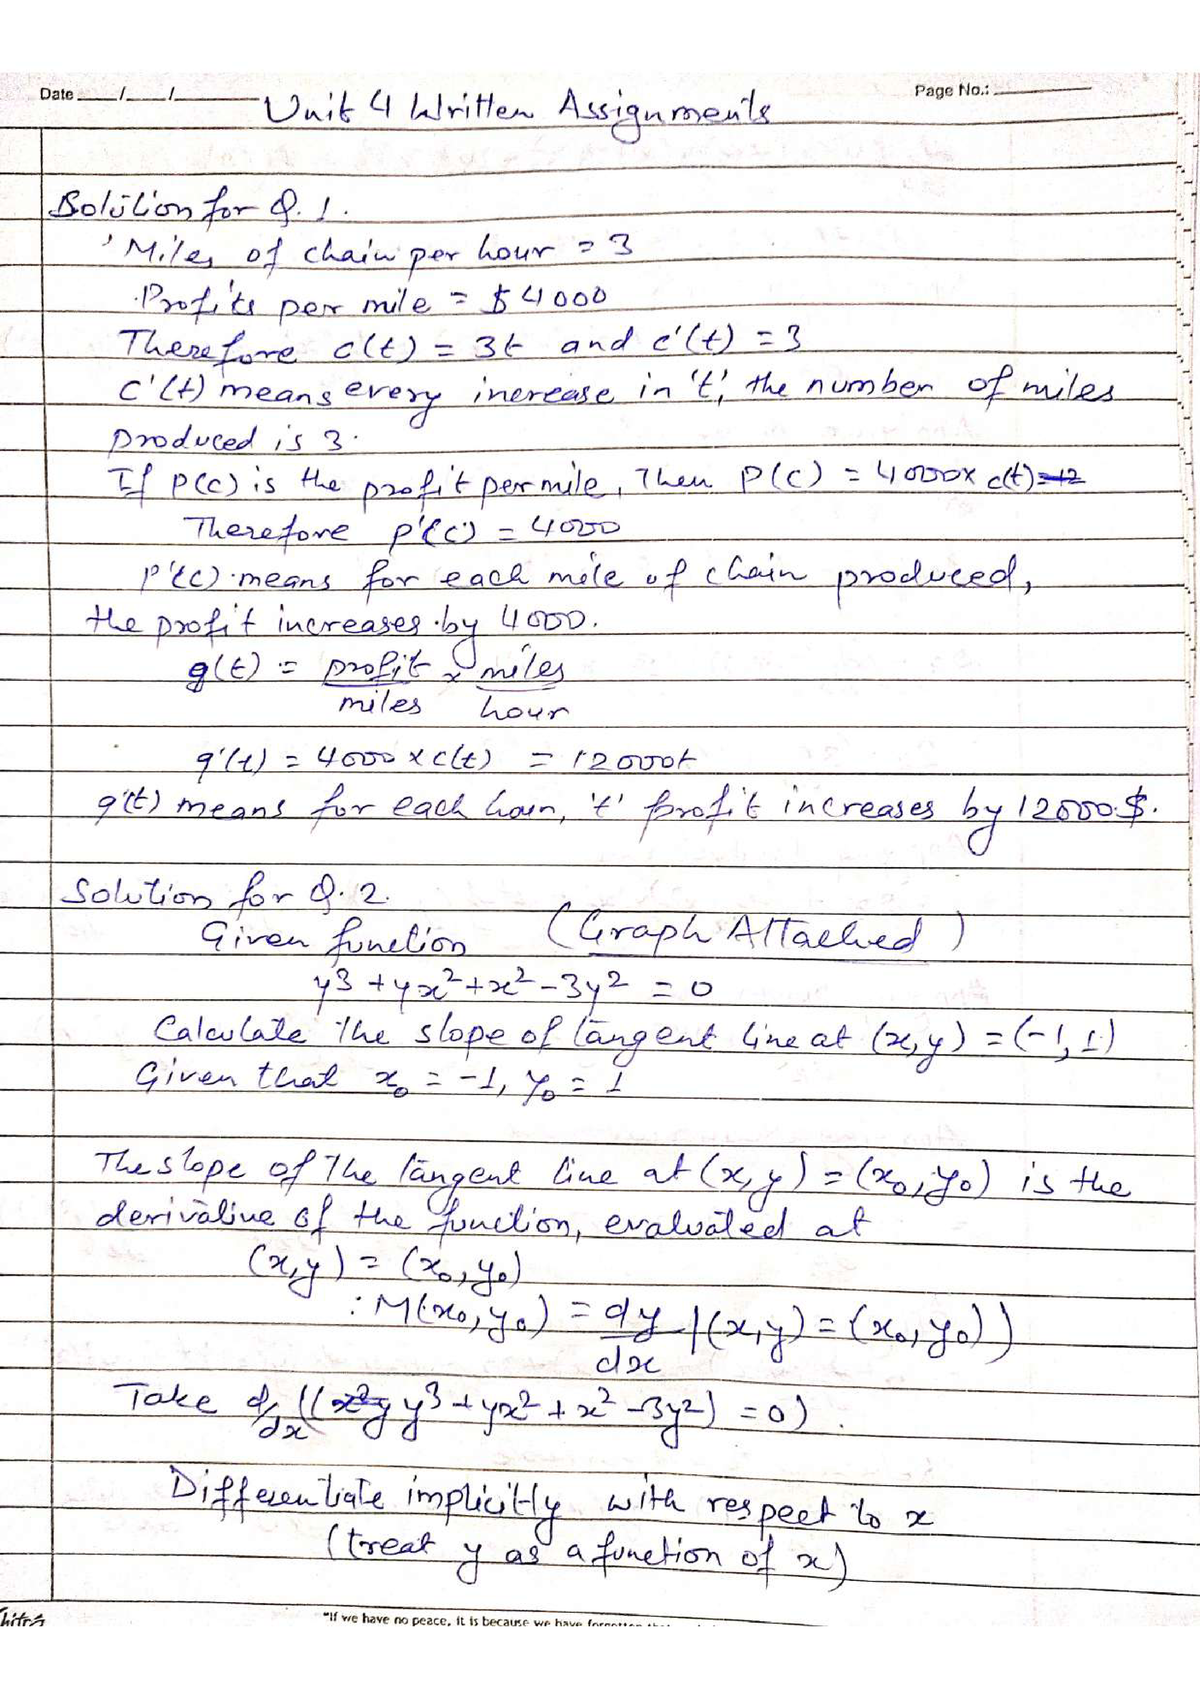 Date ___/___/___
Page No.:
Unit 4 Written Assignments
Solution for Q.1.
Miles of chain per hour = 3
Profits per mile = $4000
Therefore c(t) = 3t and c'(t) = 3
c'(t) means every increase in 't', the number of miles
produced is 3.
If P(c) is the profit per mile, Then P(c) = 4000x c(t)
Therefore p'(c) = 4000
p'(c) means for each mile of chain produced,
the profit increases by 4000.
g(t) = profit/miles x miles/hour
g'(t) = 4000 x c(t) = 12000t
g'(t) means for each hour, 't' profit increases by 12000.$.
Solution for Q.2.
Given function (Graph Attached)
y3 + yx2 + x2 - 3y2 = 0
Calculate the slope of tangent line at (x,y) = (-1, 1)
Given that x0 = -1, y0 = 1
The slope of The tangent line at (x,y) = (x0, y0) is the
derivative of the function, evaluated at
(x,y) = (x0, y0)
: M(x0, y0) = dy/dx |(x,y) = (x0, y0))
Take d/dx ((y3 + yx2 + x2 - 3y2) = 0).
Differentiate implicitly with respect to x
(treat y as a function of x)
"If we have no peace, it is because we have forgotten that